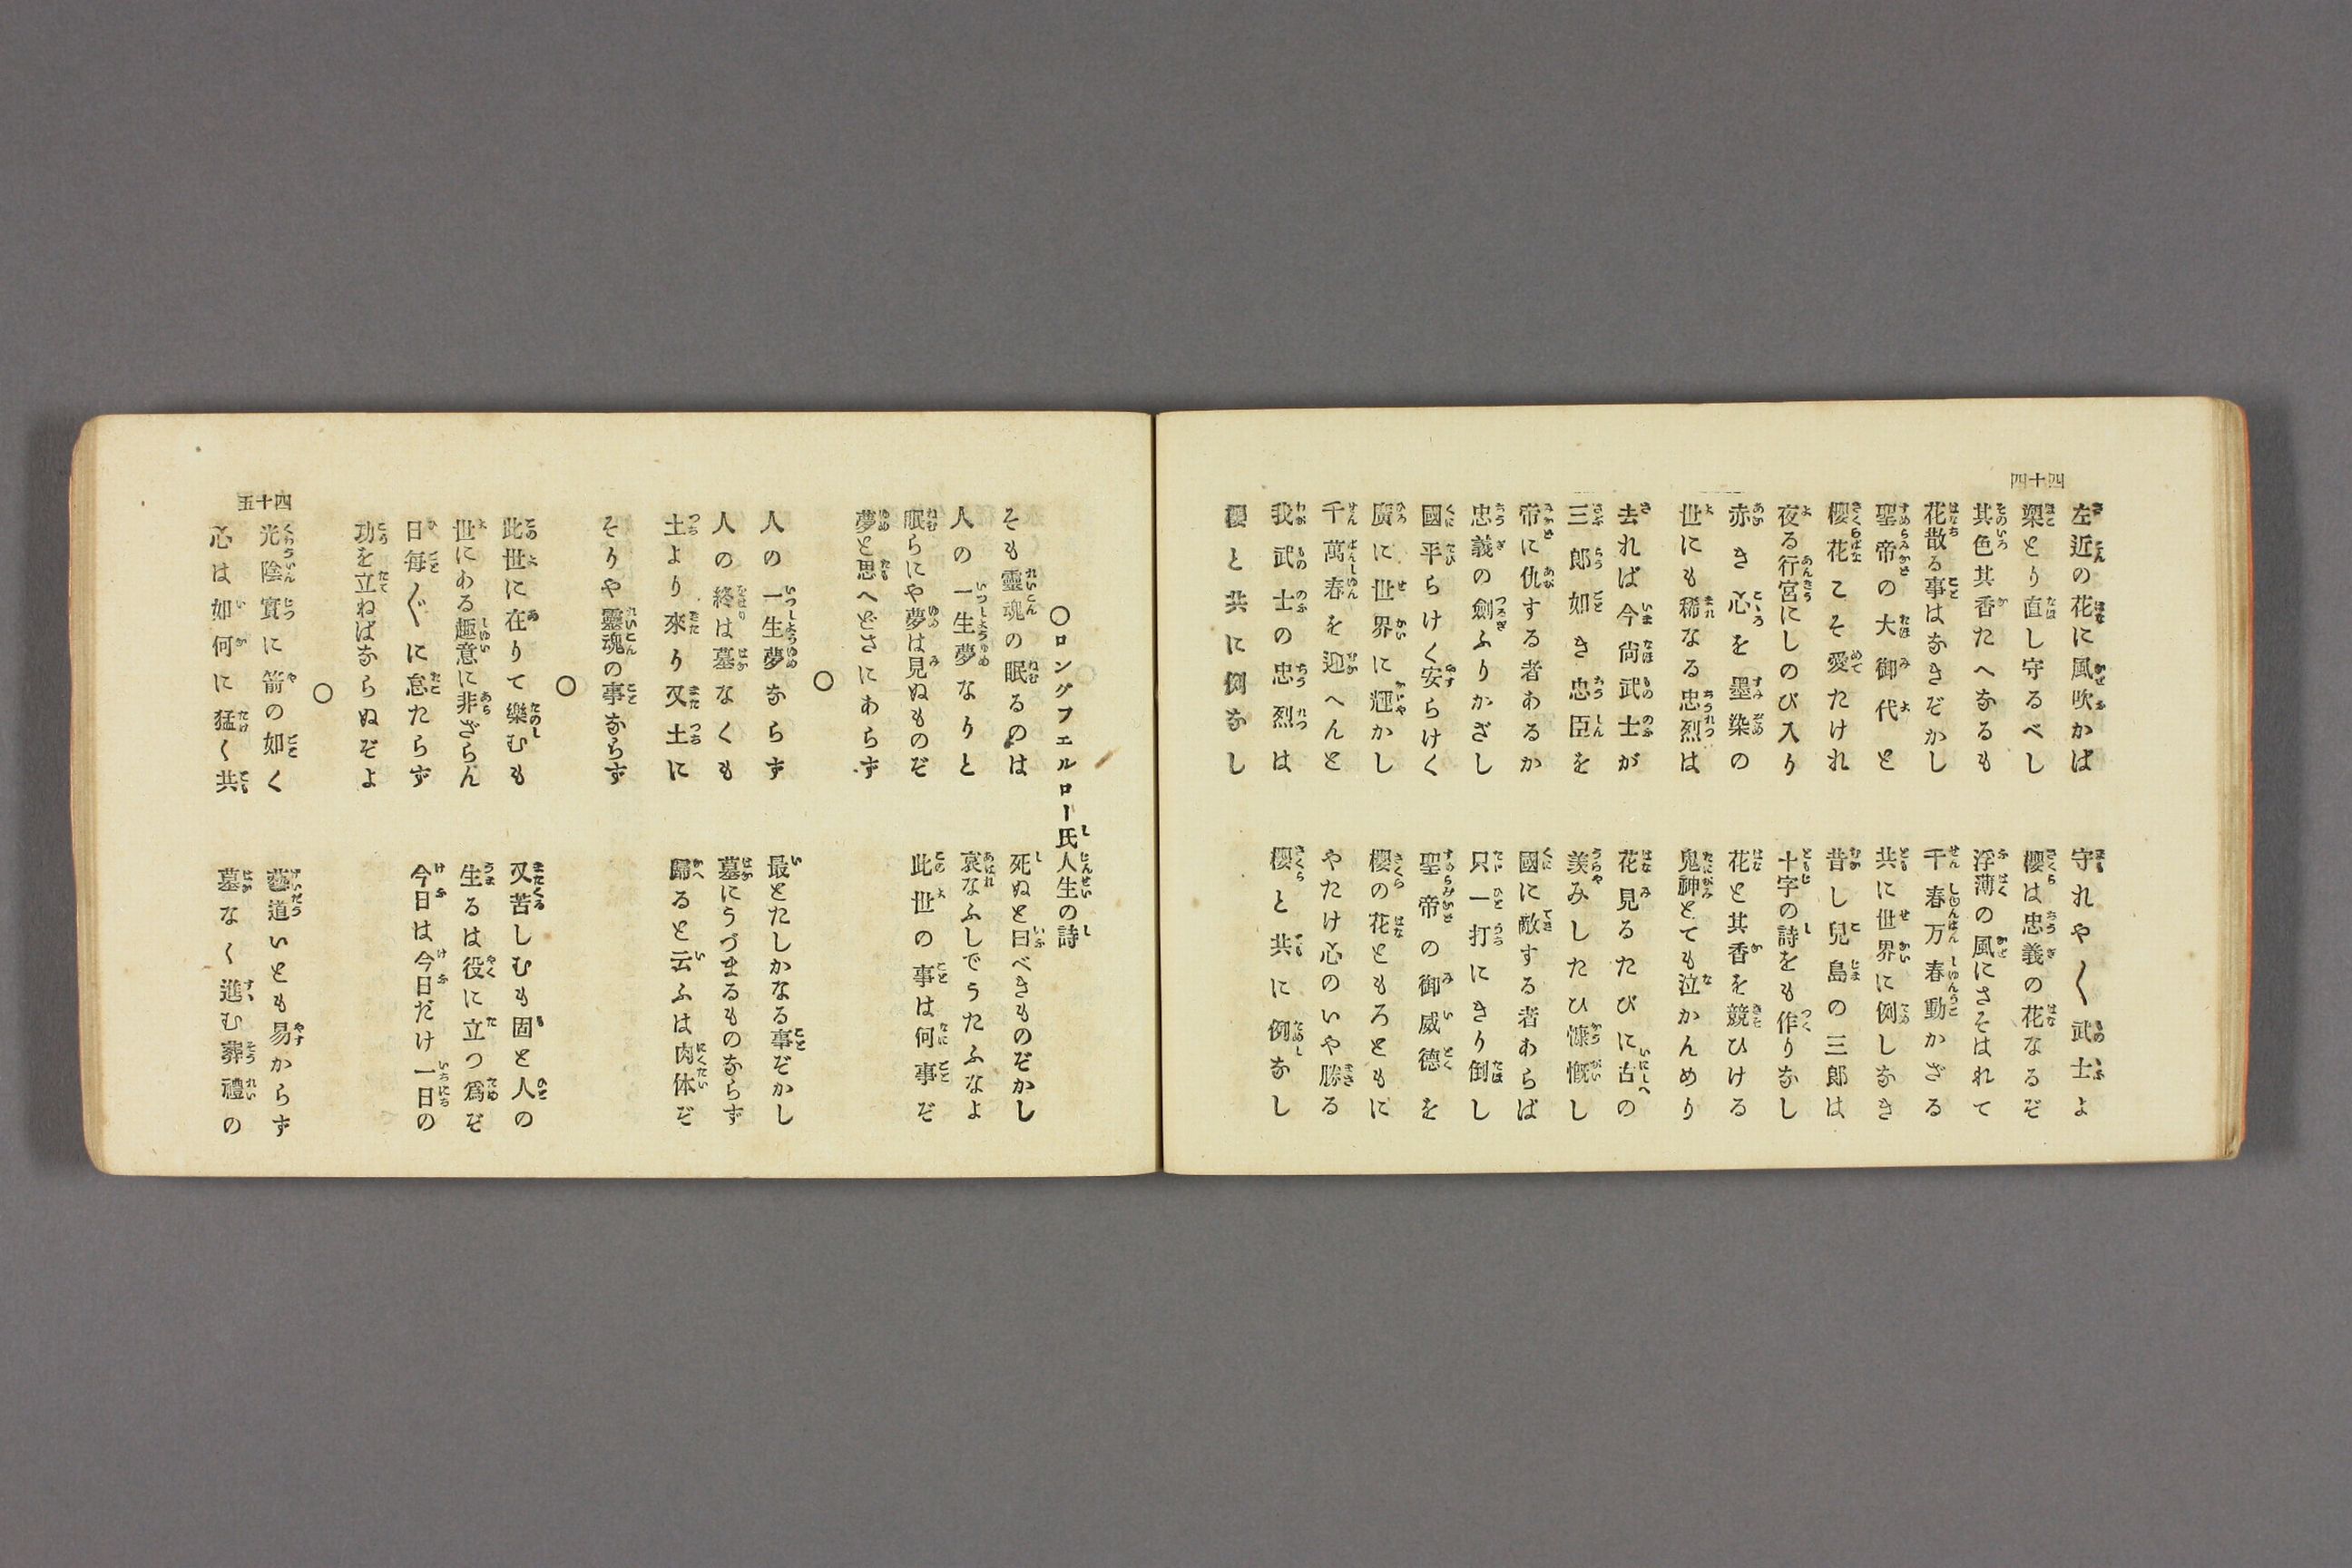 四十四
左近の花に風吹かば　守れや〱武士よ
梁とり直し守るべし　櫻は忠義の花なるぞ
其色其香たへなるも　浮薄の風にさそはれて
花散る事はなきぞかし　千春万春動かざる
聖帝の大御代と　共に世界に例しなき
櫻花こそ愛たけれ　昔し兒島の三郎は
夜る行宮にしのび入り　十字の詩をも作りなし
赤き心を墨染の　花と其香を競ひける
世にも稀なる忠烈は　鬼神とても泣かんめり
去れば今尙武士が　花見るたびに古の
三郎如き忠臣を　羨みしたひ慷慨し
帝に仇する者あるか　國に敵する者あらば
忠義の劍ふりかざし　只一打にきり倒し
國平らけく安らけく　聖帝の御威德を
廣に世界に輝かし　櫻の花ともろともに
千萬春を迎へんと　やたけ心のいや勝る
我武士の忠烈は　櫻と共に例なし
櫻と共に例なし
〇ロングフエルロー氏人生の詩
そも靈魂の眠るのは　死ぬと曰べきものぞかし
人の一生夢なりと　哀なふしでうたふなよ
眠らにや夢は見ぬものぞ　此世の事は何事ぞ
夢と思へどさにあらず
〇
人の一生夢ならず　最とたしかなる事ぞかし
人の終は墓なくも　墓にうづまるものならず
土より來り又土に　歸ると云ふは肉体ぞ
そりや靈魂の事ならず
〇
此世に在りて樂むも　又苦しむも固と人の
世にある趣意に非ざらん　生るは役に立つ爲ぞ
日每〲に怠たらず　今日は今日だけ一日の
功を立ねばならぬぞよ
〇
光陰實に箭の如く　藝道いとも易からず
心は如何に猛く共　墓なく進む葬禮の
四十五